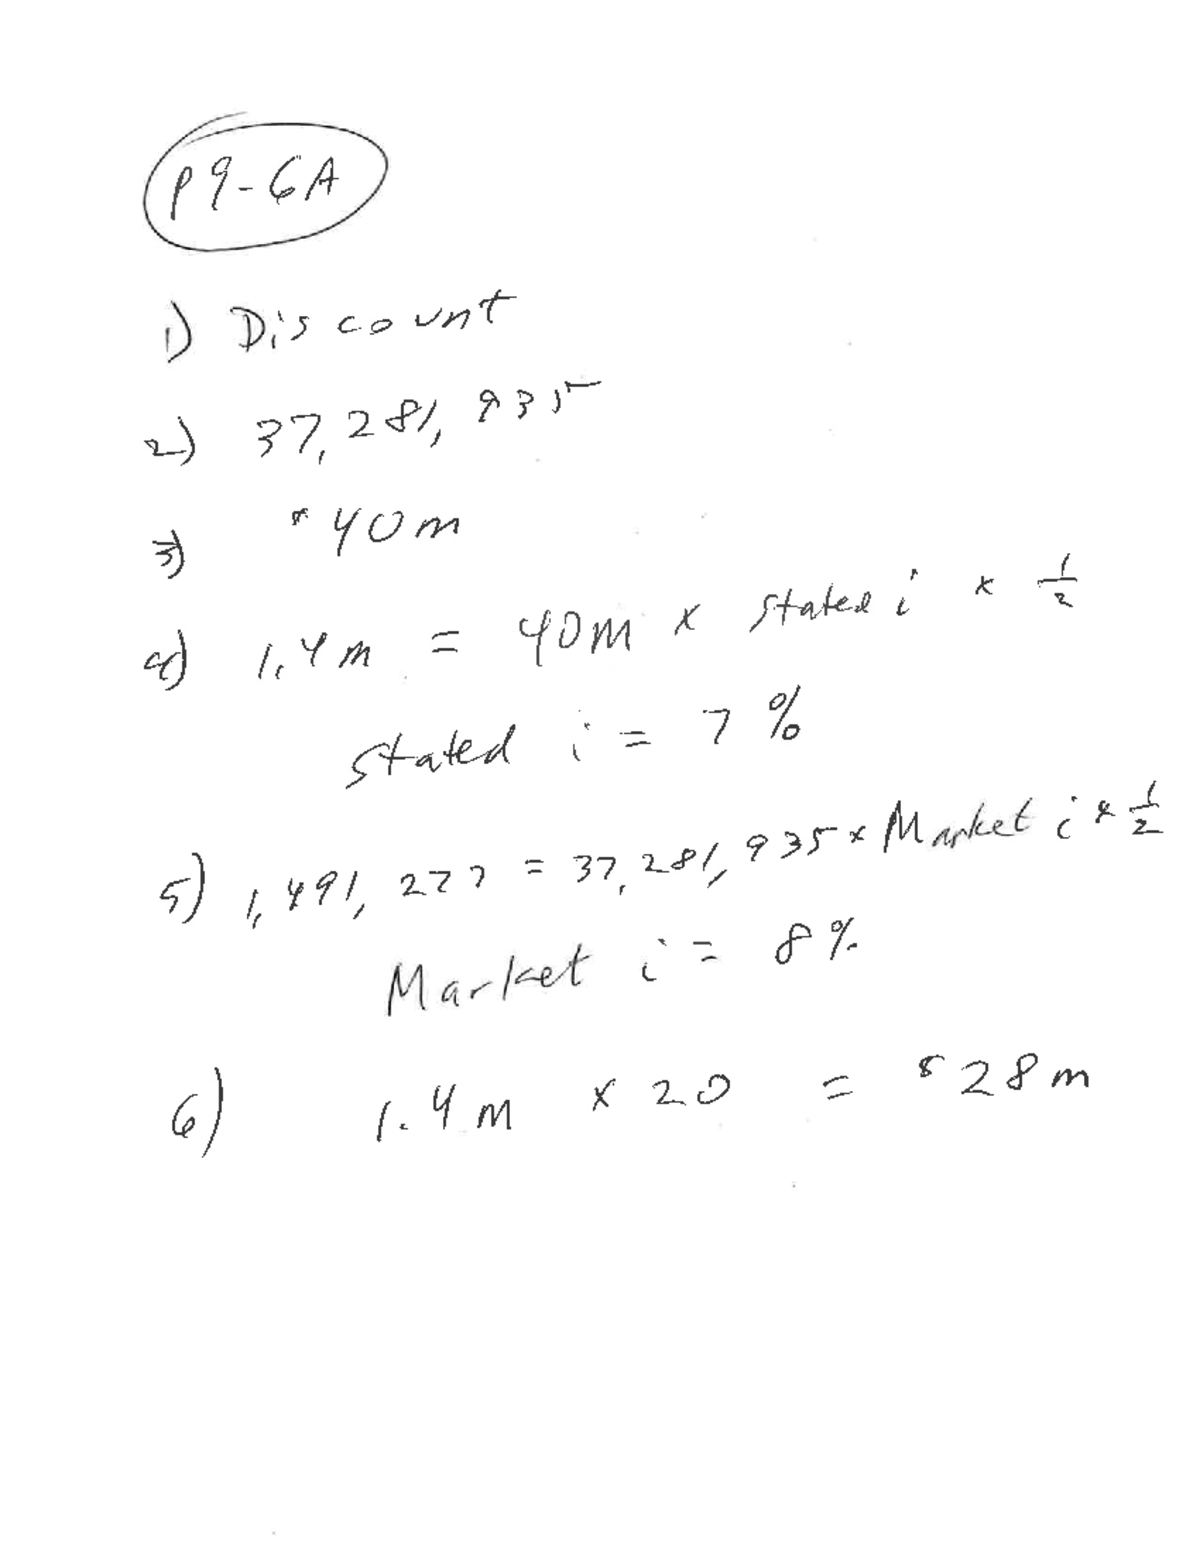 P9-6A
1) Discount
2) 37,281,935
3) $40m
4) 1.4m = 40m x stated i x 1/2
stated i = 7%
5) 1,491,277 = 37,281,935 x Market i x 1/2
Market i = 8%
6) 1.4m x 20 = $28m